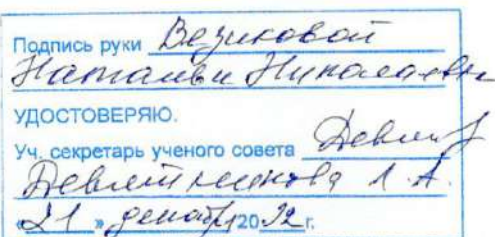 Подпись руки Везиковой
Натальи Николаевны
УДОСТОВЕРЯЮ.
Уч. секретарь ученого совета
Л. А.
«21» декабря 20 г.